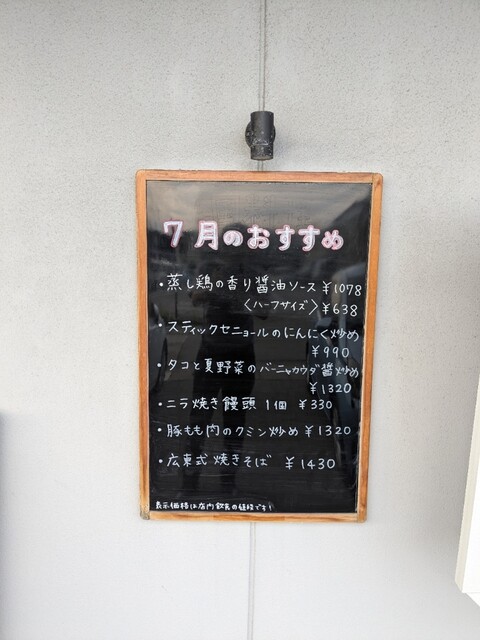 7月のおすすめ
・蒸し鶏の香り醤油ソース ¥1078
〈ハーフサイズ〉¥638
・スティックセニョールのにんにく炒め
¥990
・タコと夏野菜のバーニャカウダ醤炒め
¥1320
・ニラ焼き饅頭 1個 ¥330
・豚もも肉のクミン炒め ¥1320
・広東式焼きそば ¥1430
表示価格は店内飲食の値段です!